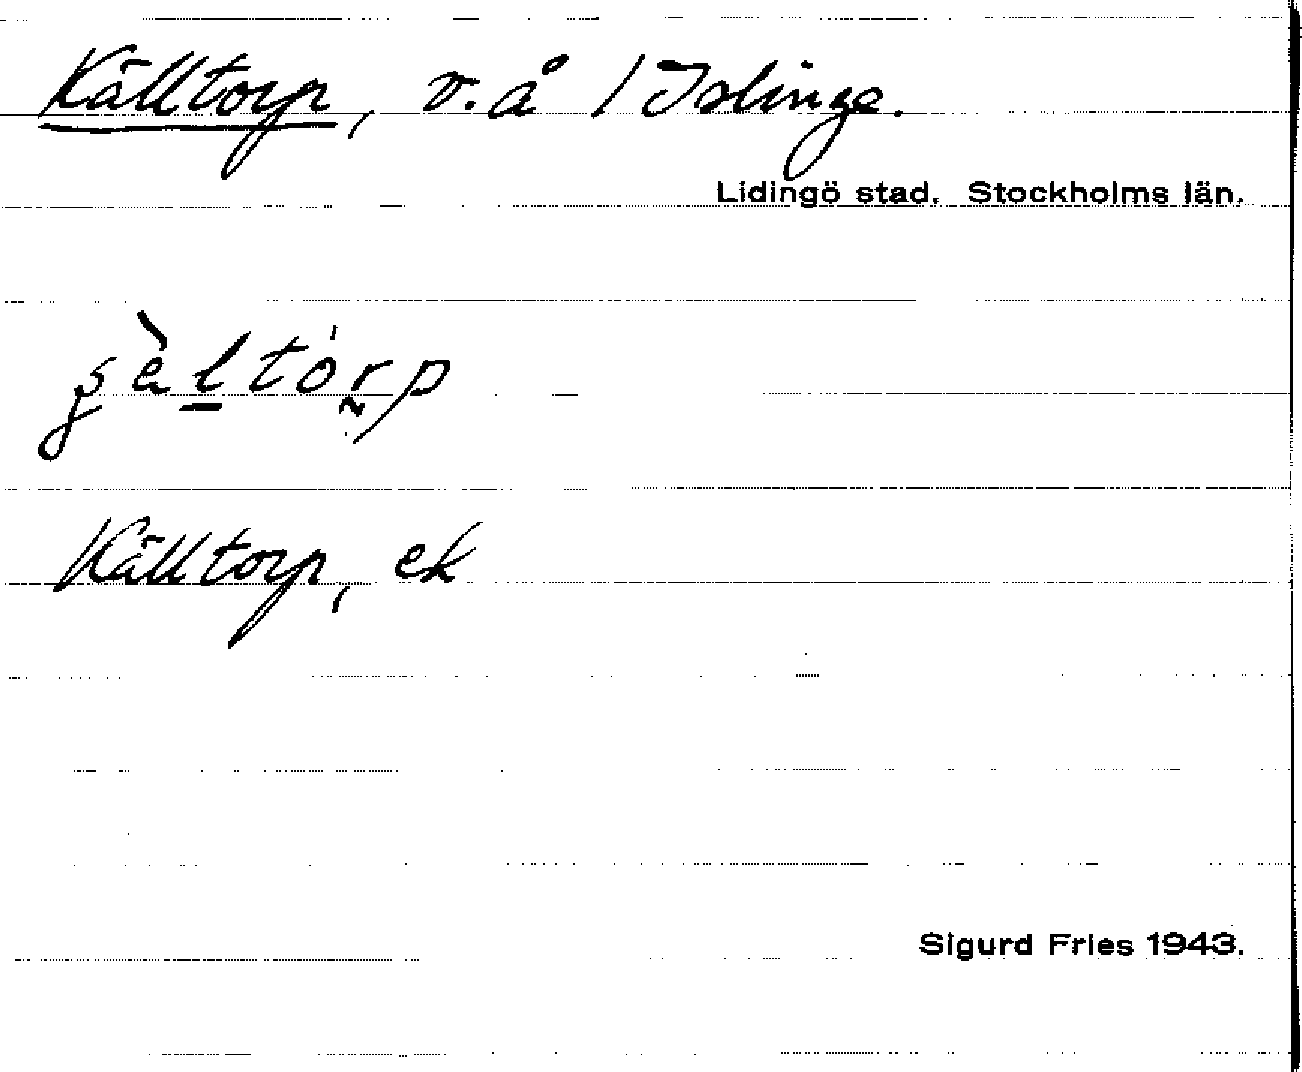 Källtorp, v. å / Islinge.
Lidingö stad. Stockholms län.
Källtorp, ek
Sigurd Fries 1943.